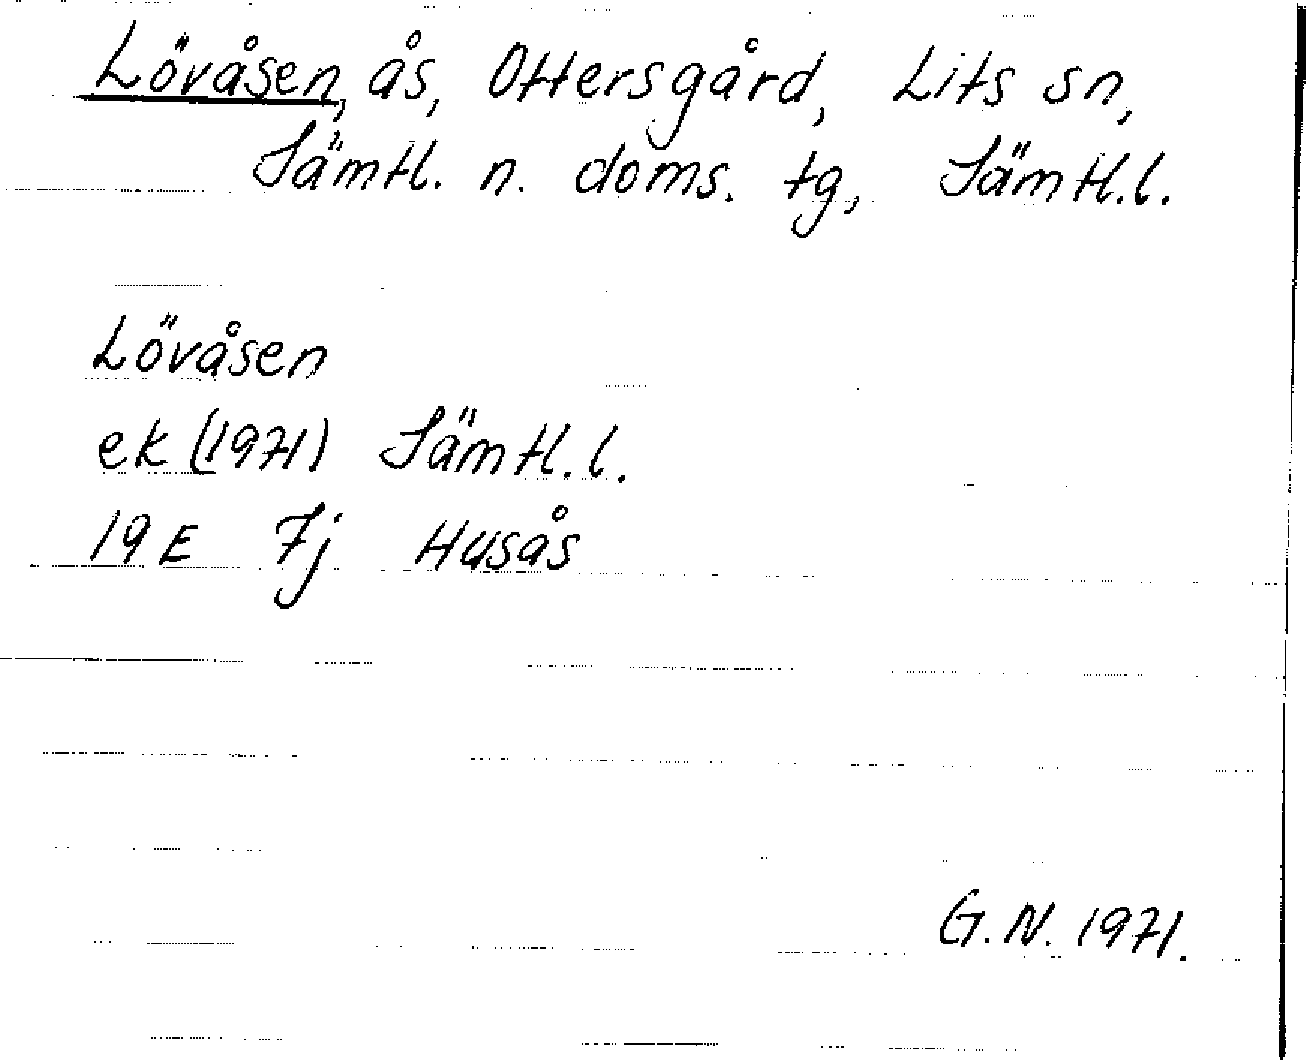 Lövåsen, ås, Ottersgård, Lits sn,
Jämtl. n. doms. tg, Jämtl.l.
Lövåsen
ek (1971) Jämtl.l.
19E 7j Husås
G.N. 1971.